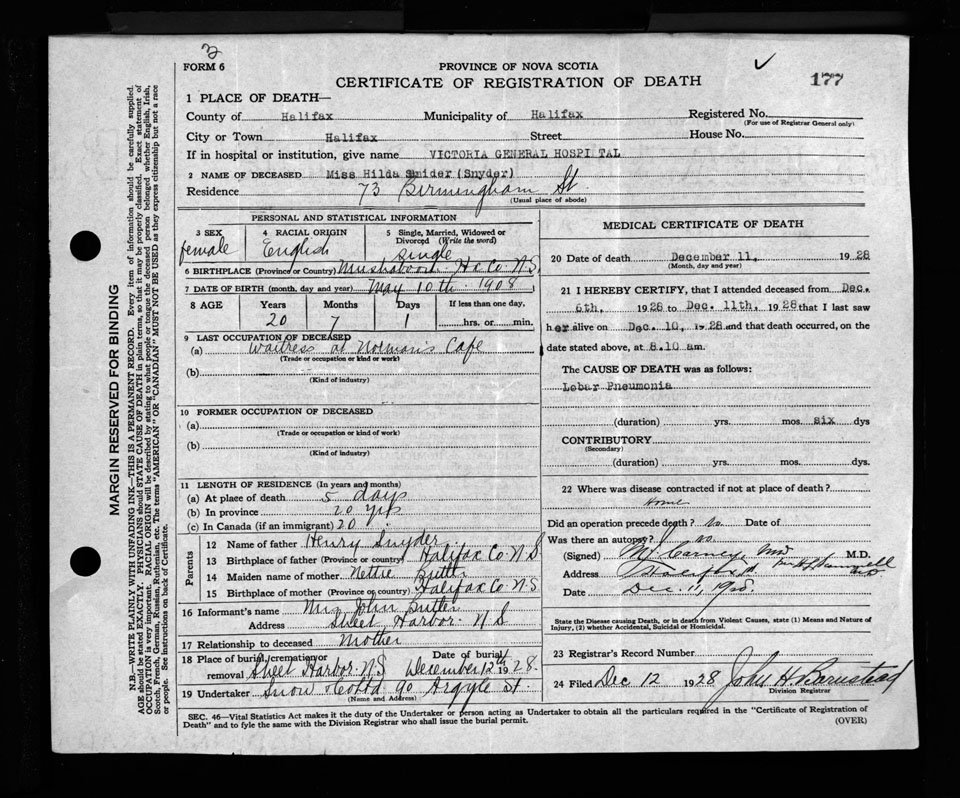 3
FORM 6
PROVINCE OF NOVA SCOTIA
CERTIFICATE OF REGISTRATION OF DEATH
177
1 PLACE OF DEATH—
County of Halifax Municipality of Halifax Registered No.
(For use of Registrar General only)
City or Town Halifax Street House No.
If in hospital or institution, give name VICTORIA GENERAL HOSPI TAL
2 NAME OF DECEASED Miss Hilda Snider (Snyder)
Residence 73 Birmingham St
(Usual place of abode)
PERSONAL AND STATISTICAL INFORMATION
3 SEX 4 RACIAL ORIGIN 5 Single, Married, Widowed or Divorced (Write the word)
female English single
6 BIRTHPLACE (Province or Country) Hx Co. N S
7 DATE OF BIRTH (month, day and year) May 10th 1908
8 AGE Years Months Days If less than one day,
20 7 1 hrs. or min.
9 LAST OCCUPATION OF DECEASED
(a) Waitress at Norman's Cafe
(Trade or occupation or kind or work)
(b)
(Kind of industry)
10 FORMER OCCUPATION OF DECEASED
(a)
(Trade or occupation or kind of work)
(b)
(Kind of industry)
11 LENGTH OF RESIDENCE (In years and months)
(a) At place of death 5 days
(b) In province 20 yrs
(c) In Canada (if an immigrant) 20
Parents
12 Name of father Henry Snyder
13 Birthplace of father (Province or country) Halifax Co. N S
14 Maiden name of mother Nettie Butler
15 Birthplace of mother (Province or country) Halifax Co. N S
16 Informant's name Mrs John Butler
Address Sheet Harbor N S
17 Relationship to deceased Mother
18 Place of burial, cremation or removal Sheet Harbor N.S Date of burial December 12th 1928.
19 Undertaker Snow 90 Argyle St.
(Name and Address)
MEDICAL CERTIFICATE OF DEATH
20 Date of death December 11, 1928
(Month, day and year)
21 I HEREBY CERTIFY, that I attended deceased from Dec.
6th, 1928 to Dec. 11th, 1928 that I last saw
her alive on Dec. 10, 1928 and that death occurred, on
date stated above, at 8.10 am.
The CAUSE OF DEATH was as follows:
Lobar Pneumonia
(duration) yrs. mos. six dys
CONTRIBUTORY
(Secondary)
(duration) yrs. mos. dys.
22 Where was disease contracted if not at place of death?
Home
Did an operation precede death? no Date of
Was there an autopsy? no.
(Signed) M. J. Carney M.D.
Address Halifax
Date Dec. 11, 1928.
State the Disease causing Death, or in death from Violent Causes, state (1) Means and Nature of Injury, (2) whether Accidental, Suicidal or Homicidal.
23 Registrar's Record Number
24 Filed Dec 12 1928 John H. Barnstead
Division Registrar
SEC. 46—Vital Statistics Act makes it the duty of the Undertaker or person acting as Undertaker to obtain all the particulars required in the "Certificate of Registration of
Death" and to fyle the same with the Division Registrar who shall issue the burial permit.
(OVER)
MARGIN RESERVED FOR BINDING
N.B.—WRITE PLAINLY WITH UNFADING INK—THIS IS A PERMANENT RECORD. Every item of information should be carefully supplied.
AGE should be stated EXACTLY. PHYSICIANS should STATE CAUSE OF DEATH in plain terms, so that it may be properly classified. Exact statement of
OCCUPATION is very important. RACIAL ORIGIN will be described by stating to what people or tongue the deceased person belonged whether English, Irish,
Scotch, French, German, Russian, Ruthenian, etc. The terms "AMERICAN" OR "CANADIAN" MUST NOT BE USED as they express citizenship but not a race
or people. See instructions on back of Certificate.